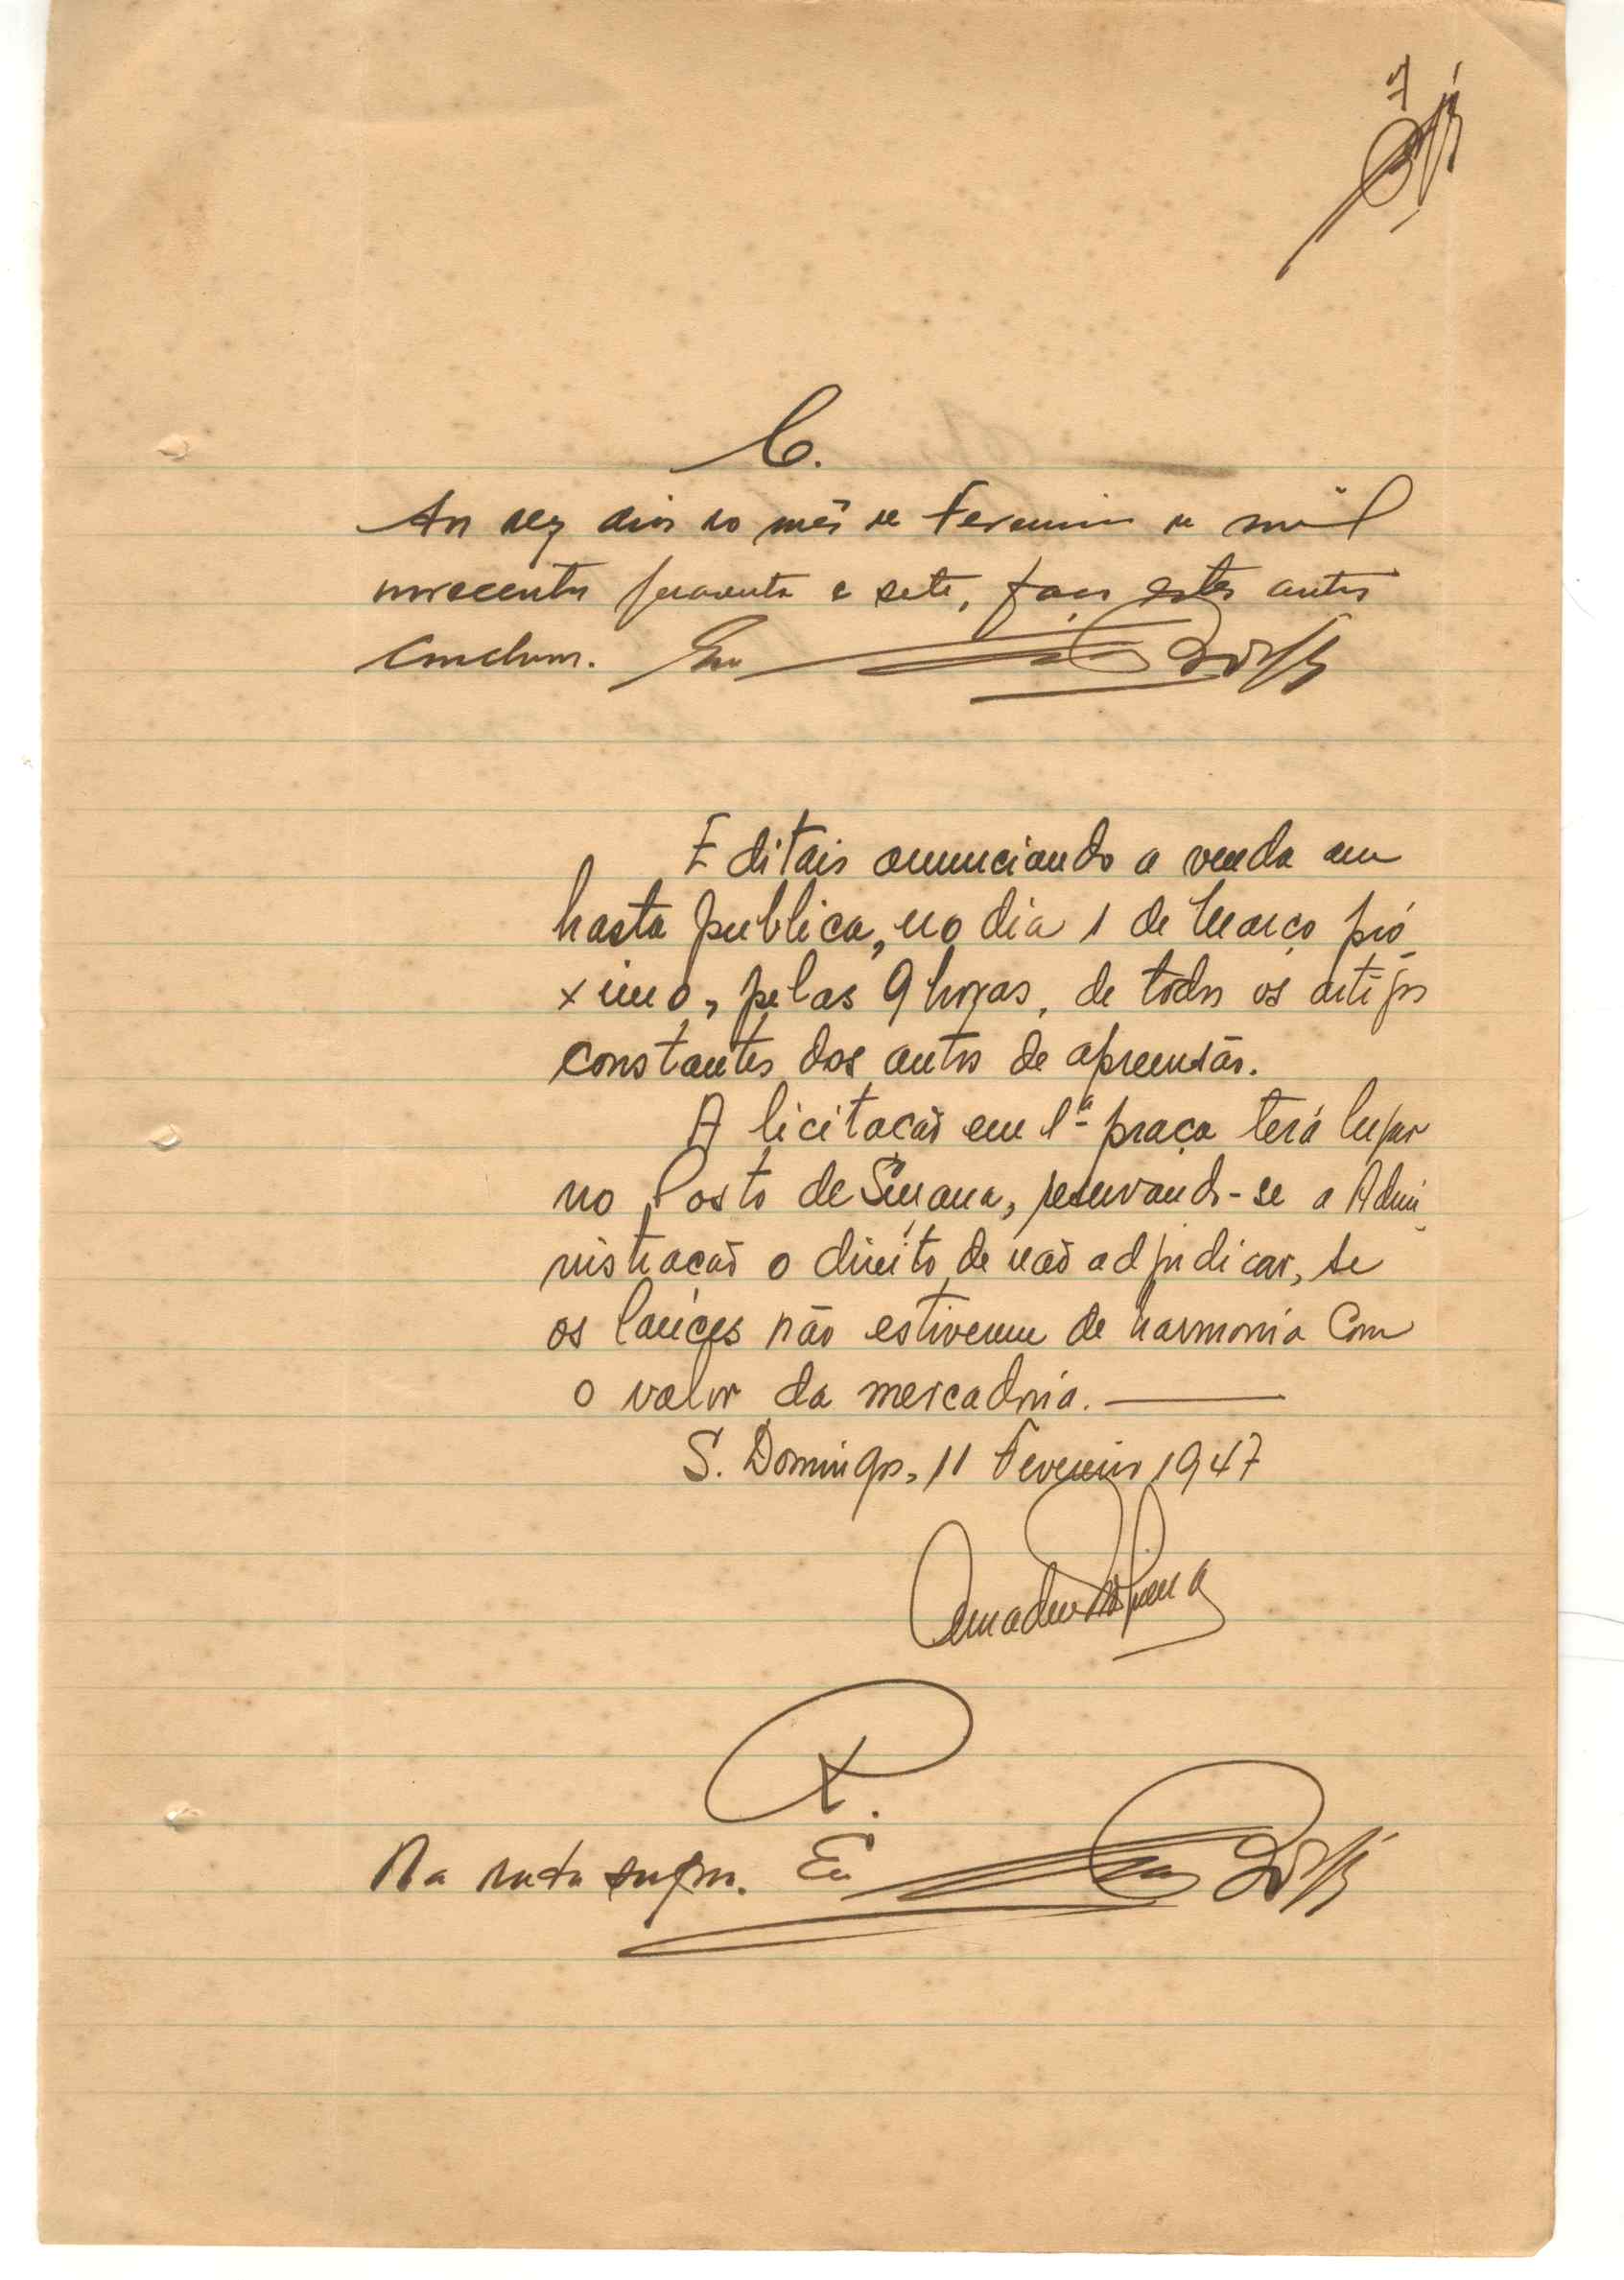 7
C.
Aos dez dias do mês de Fevereiro de mil
novecentos quarenta e sete, faço estes autos
conclusos. Eu
Editais anunciando a venda em
hasta publica, no dia 1 de Março pró
ximo, pelas 9 horas, de todos os artigos
constantes dos autos de apreensão.
A licitação em 1ª praça terá lugar
no Posto de Suzana, reservando-se a Admi
nistração o direito de não adjudicar, se
os lances não estiverem de harmonia com
o valor da mercadoria.
S. Domingos, 11 Fevereiro 1947
R.
Na data supra. Eu